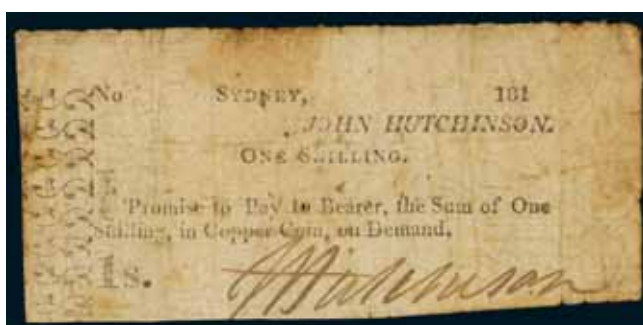 No SYDNEY, 181
JOHN HUTCHINSON.
ONE SHILLING.
Promise to Pay to Bearer, the Sum of One
Shilling, in Copper Coin, on Demand.
JHutchinson